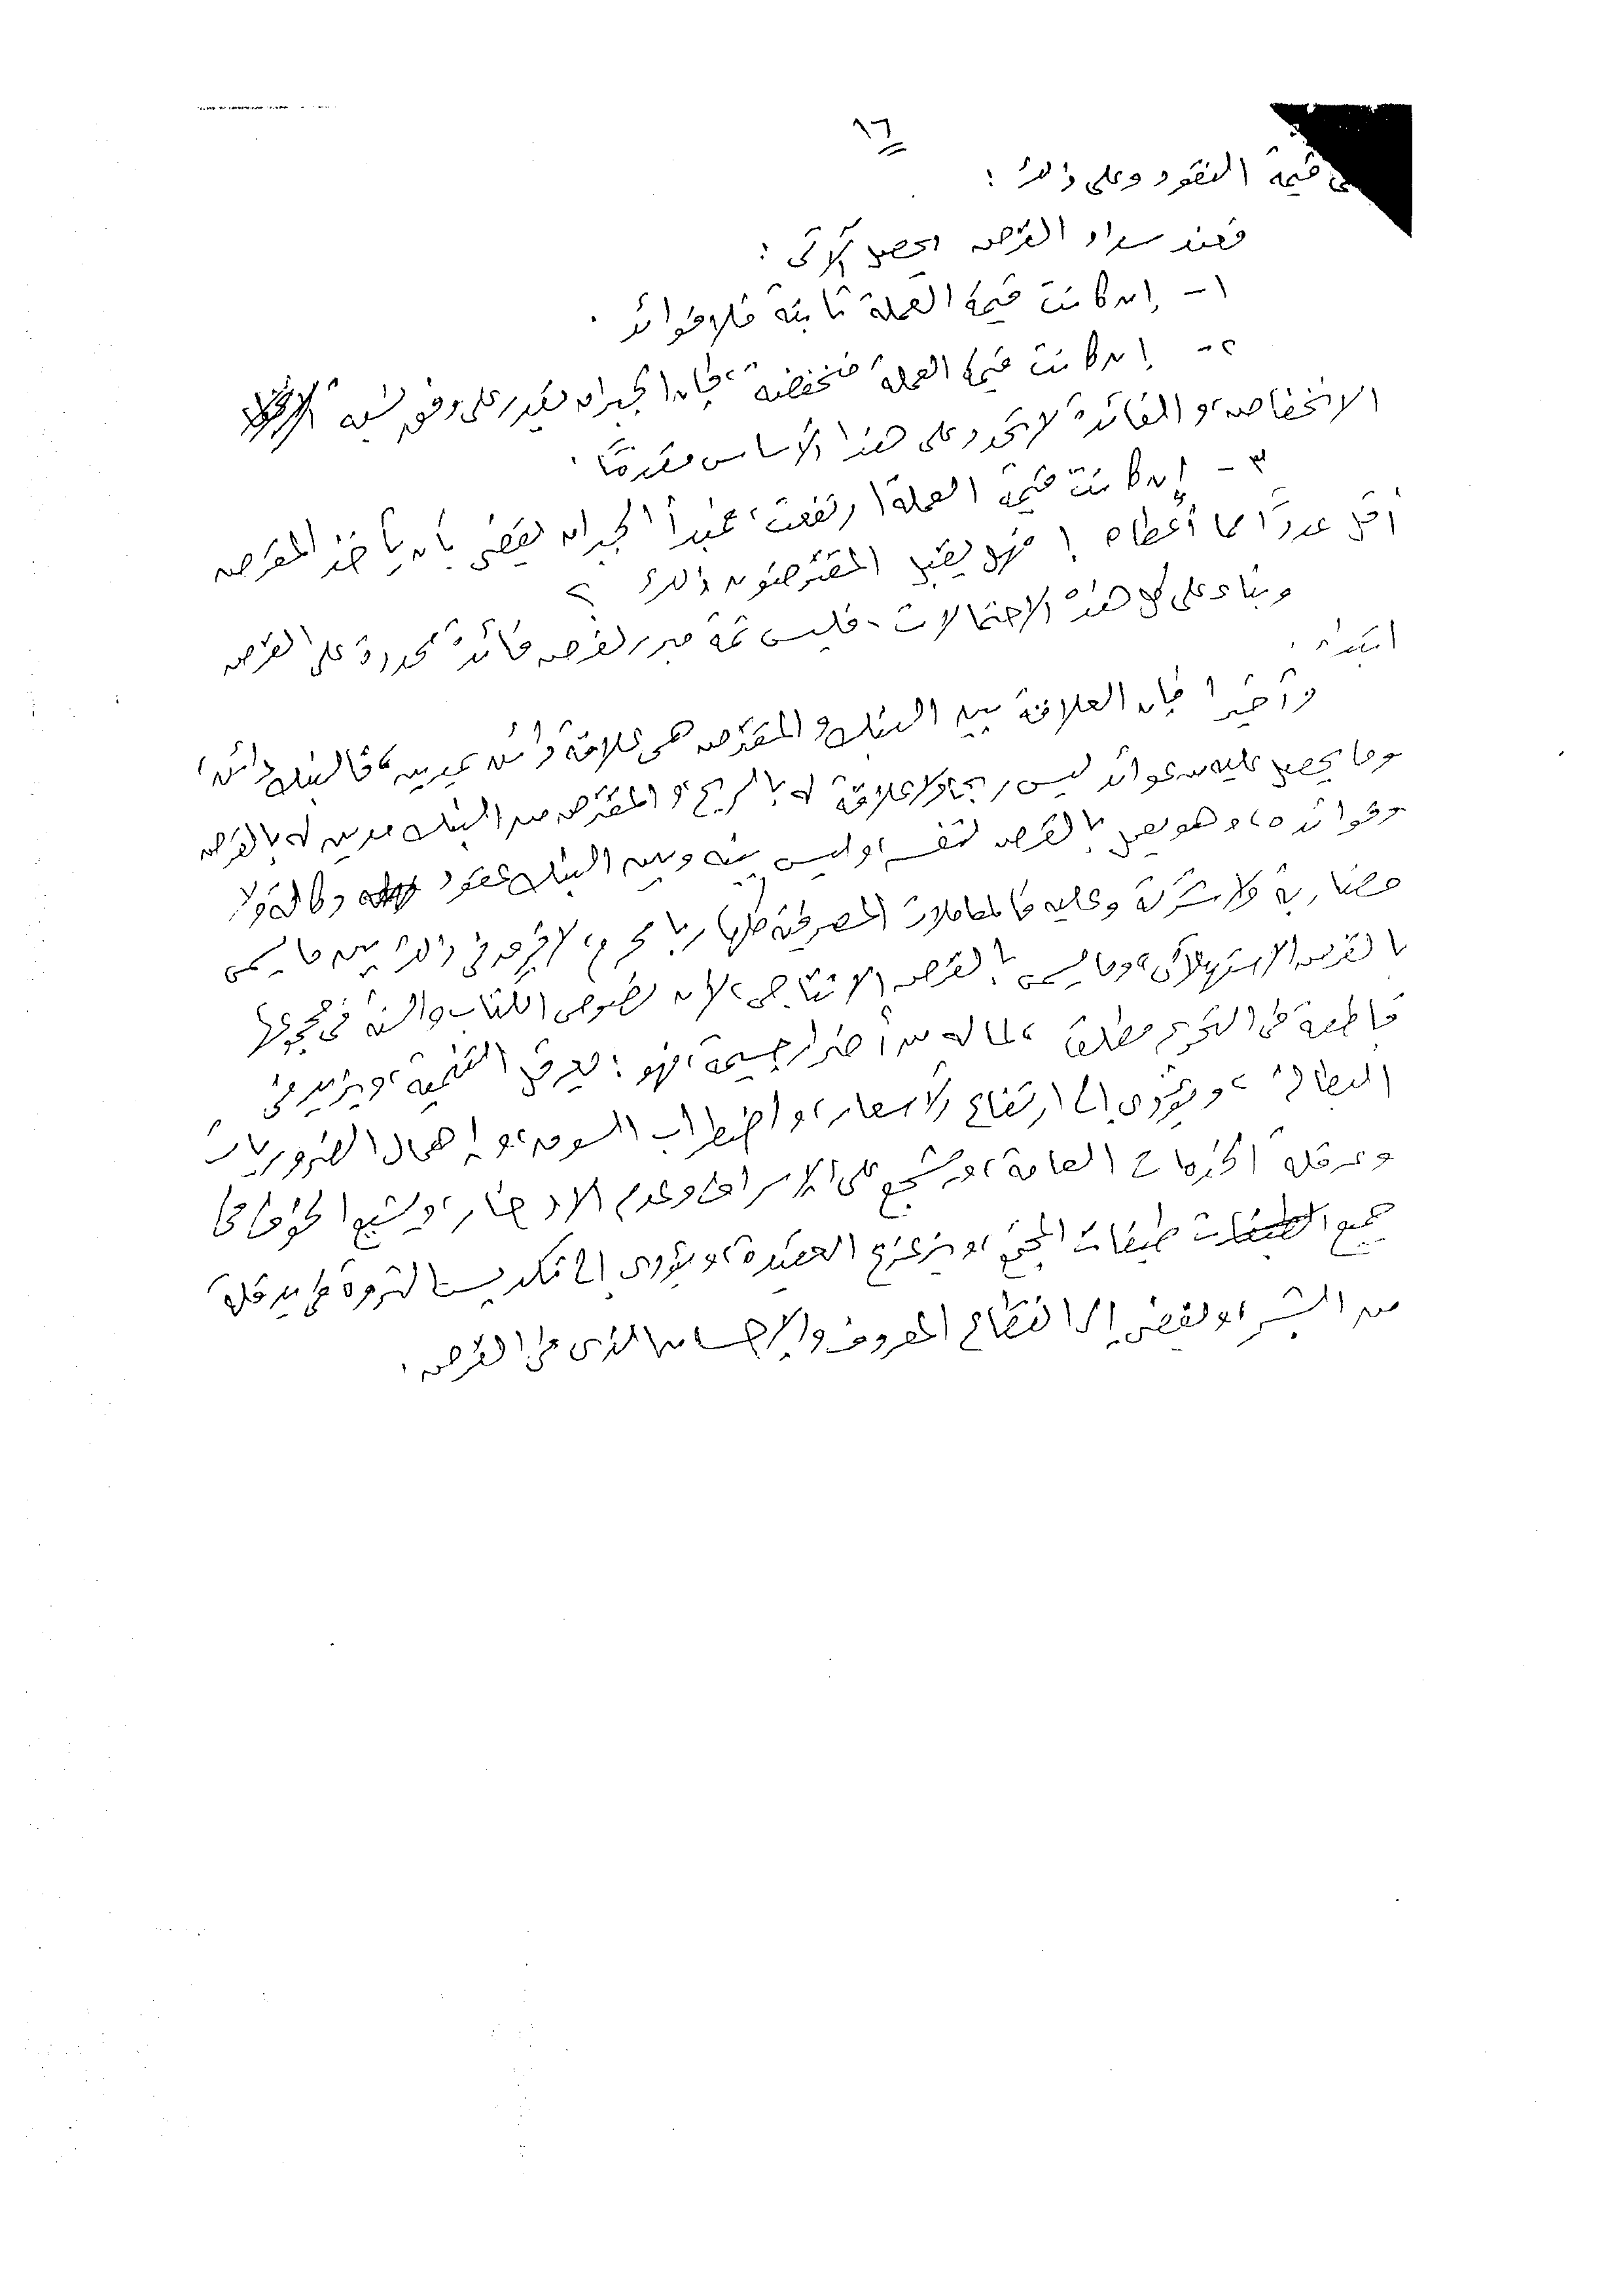 ١٦
قيمة النقود وعلى ذلك :
فعند سداد القرض يحصل الآتى :
١ - إن كانت قيمة العملة ثابتة فلا فوائد .
٢ - إن كانت قيمة العملة منخفضة ، فإن الجبران يقدر على وفق نسبة
الانخفاض ، والفائدة لا تحدد على هذا الأساس مقدمًا .
٣ - إن كانت قيمة العملة ارتفعت ، فمبدأ الجبران يقضى بأن يأخذ المقرض
أقل عددًا مما أعطاه ! فهل يقبل المقترضون ذلك ؟
وبناء على كل هذه الاحتمالات - فليس ثمة مبرر لفرض فائدة محددة على القرض
ابتداء .
وأخيرا فإن العلاقة بين البنك والمقترض هى علاقة دائن بمدين ، فالبنك دائن ،
وما يحصل عليه من عوائد ليس ربحا ولا علاقة له بالربح ، والمقترض من البنك مدين له بالقرض
وفوائده ، وهو يعمل بالقرض لنفسه ، وليس بينه وبين البنك عقود وكالة ولا
مضاربة ولا شركة وعليه فالمعاملات المصرفية كلها ربا محرم ، لا فرق فى ذلك بين ما يسمى
بالقرض الاستهلاكى ، وما يسمى بالقرض الإنتاجى ، لأن نصوص الكتاب والسنة فى مجموعها
قاطعة فى التحريم مطلقا ، لما له من أضرار جسيمة ، فهو : يعرقل التنمية ، ويزيد فى
البطالة ، ويؤدى إلى ارتفاع الأسعار ، واضطراب السوق ، وإهمال الضروريات
وعرقلة الخدمات العامة ، ويشجع على الإسراف وعدم الادخار ، ويشيع الخوف فى
جميع الطبقات طبقات المجتمع ، ويزعزع العقيدة ، ويؤدى إلى تكديس الثروة فى يد قلة
من البشر ، ويفضى إلى انقطاع المعروف والإحسان الذى فى القرض .